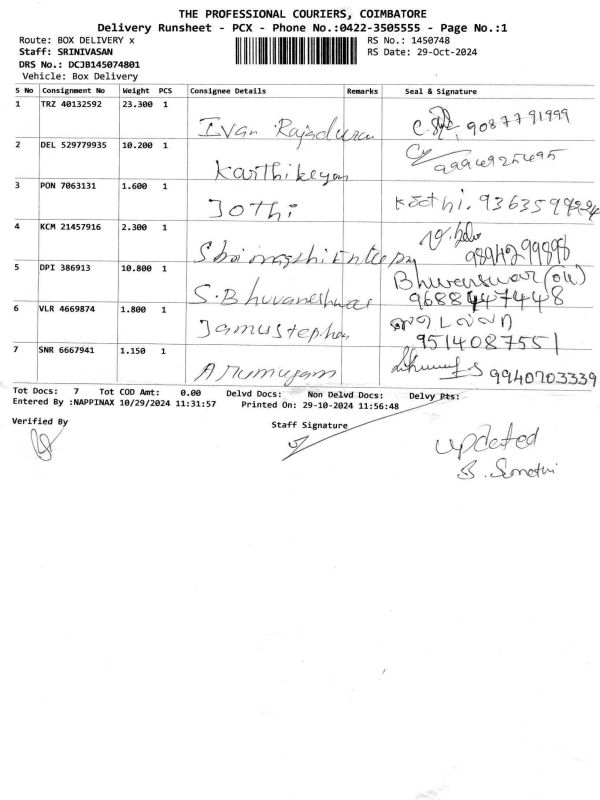 THE PROFESSIONAL COURIERS, COIMBATORE
Delivery Runsheet - PCX - Phone No.:0422-3505555 - Page No.:1
Route: BOX DELIVERY x RS No.: 1450748
Staff: SRINIVASAN RS Date: 29-Oct-2024
DRS No.: DCJB145074801
Vehicle: Box Delivery
S No Consignment No Weight PCS Consignee Details Remarks Seal & Signature
1 TRZ 40132592 23.300 1
Ivan Rajadurai 9087791999
2 DEL 529779935 10.200 1
Karthikeyan 9994925495
3 PON 7063131 1.600 1
Jothi
4 KCM 21457916 2.300 1
9894299898
5 DPI 386913 10.800 1 Bhuvaneswar
S.Bhuvaneshwar 9688447448
6 VLR 4669874 1.800 1
Jamustephen 9514087551
7 SNR 6667941 1.150 1
Arumugam 9940703339
Tot Docs: 7 Tot COD Amt: 0.00 Delvd Docs: Non Delvd Docs: Delvy Pts:
Entered By :NAPPINAX 10/29/2024 11:31:57 Printed On: 29-10-2024 11:56:48
Verified By Staff Signature
updated